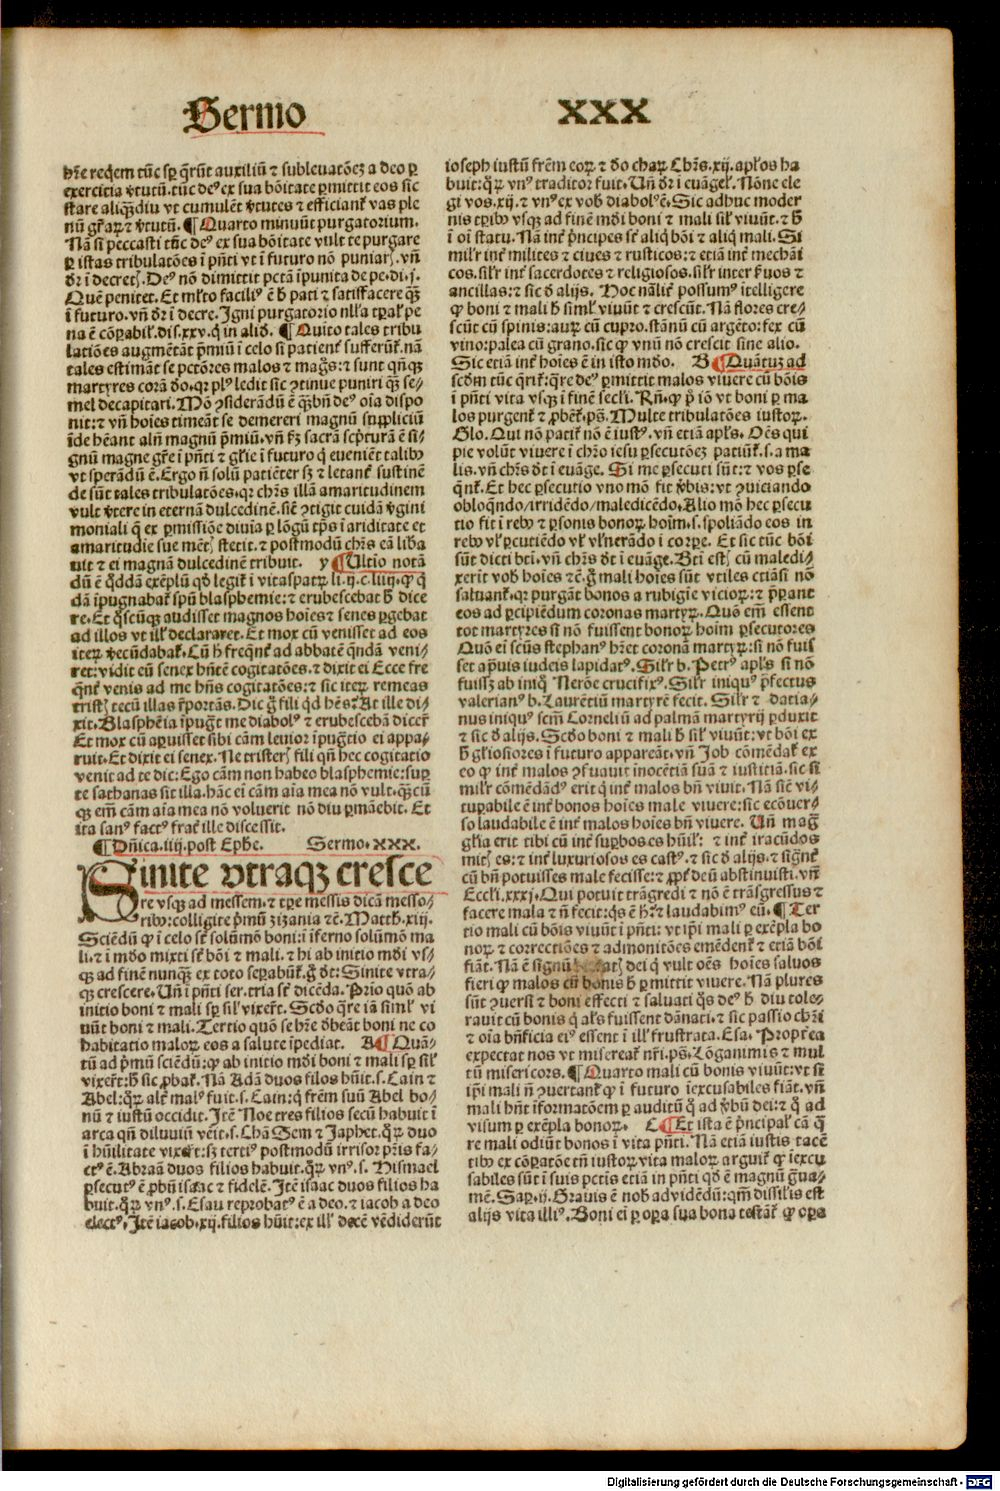 Sermo XXX
hr̃e reqẽm tũc sꝑ q̃rũt auxiliũ ⁊ subleuatõeꝫ a deo ꝑ
exercitia ṽtutũ. tũc deꝰ ex sua bõitate ꝑmittit eos sic
stare aliqͣdiu vt cumulẽt ṽtutes ⁊ efficianẗ vas ple
nũ gr̃aꝝ ⁊ ṽtutũ. ¶ Quarto minuũt purgatorium.
Nã si peccasti tũc deꝰ ex sua bõitate vult te purgare
ꝑ istas tribulatões ĩ pñti vt ĩ futuro nõ puniaris. vñ
dr̃ ĩ decretis. Deꝰ nõ dimittit pctã ĩpunita de pe. di. j.
Quẽ penitet. Et ml̃to faciliꝰ ẽ h̃ pati ⁊ satisfacere qͣꝫ
ĩ futuro. vñ dr̃ ĩ decre. Igni purgatorio nl̃la tꝑal̃ pe
na ẽ cõꝑabil̃. dis. xxv. q̃ in aliõ. ¶ Quito tales tribu
latiões augmẽtãt p̃miũ ĩ celo si patienẗ sufferũẗ. nã
tales estimãt se pctõres malos ⁊ magis: ⁊ sunt qñqꝫ
martyres corã deo. qꝛ plꝰ ledit sic ꝯtinue puniri qͣꝫ se-
mel decapitari. Mõ ꝯsiderãdũ ẽ qͣꝫ bñ deꝰ oĩa dispo
nit: ⁊ vñ hoĩes timeãt se demereri magnũ suppliciũ
ĩde hẽant alñ magnũ p̃miũ. vñ fꝫ sacrã scͥpturã ẽ si⸗
gnũ magne gr̃e ĩ pñti ⁊ gl̃ie ĩ futuro q̃ eueniẽt talibꝰ
vt sperãdũ ẽ. Ergo nõ solũ patiẽter sꝫ ⁊ letanẗ sustinẽ
de sũt tales tribulatões. qꝛ chr̃s illã amaritudinem
vult ṽtere in eternã dulcedinẽ. siẽ ꝯtigit cuidã ṽgini
moniali q̃ ex ꝑmissiõe diuĩa ꝑ lõgũ tp̃s ĩ ariditate et
amaritudie sue mẽtis stetit. ⁊ postmodũ chr̃s eã liƀa
uit ⁊ ei magnã dulcedinẽ tribuit. y ¶ Ultio notã
dũ ẽ qͣddã exẽplũ qd̃ legiẗ ĩ vitaspatꝝ li. ij. c. liiij. ꝙ q̃
dã ĩpugnabaẗ spũ blasphemie: ⁊ erubescebat h̃ dice
re. Et q̃scũqꝫ audisset magnos hoĩes ⁊ senes ꝑgebat
ad illos vt ill̃ declararet. Et mox cũ venisset ad eos
iteꝝ ṽecũdabaẗ. Cũ h̃ freqñẗ ad abbatẽ qñdã veni⸗
ret: vidit eũ senex hñtẽ cogitatões. ⁊ dixit ei Ecce fre
qñẗ venis ad me hñs cogitatões: ⁊ sic iteꝝ remeas
tristis tecũ illas r̃portãs. Dic g̃ fili qd̃ hẽs? At ille di⸗
xit. Blasphẽia ĩpugt̃ me diabolꝰ ⁊ erubescebã dicer̃
Et mox cũ aꝑuisset sibi cãm leuior ĩpugtĩo ei appa⸗
ruit. Et dixit ei senex. Ne tristeris fili qñ hec cogitatio
venit ad te dic: Ego cãm non habeo blasphemie: suꝑ
te sathanas sit illa. hãc ei cãm aĩa mea nõ vult. qͣꝫcũ
qꝫ em̃ cãm aĩa mea nõ voluerit nõ diu ꝑmãebit. Et
ita sanꝰ factꝰ frater ille discessit.
¶ Dñica. iiij. post Ephe. Sermo. XXX.
Sinite vtraqꝫ cresce
re vsqꝫ ad messem. ⁊ tꝑe messis dicã messo⸗
ribꝰ: colligite p̃mũ zizania ⁊c̃. Matth. xiij.
Sciẽdũ ꝙ ĩ celo st̃ solũmõ boni: ĩ ĩferno solũmõ ma
li. ⁊ ĩ mdo mixti st̃ bõi ⁊ mali. ⁊ hi ab initio mdi vs⸗
qꝫ ad finẽ nunqͣꝫ ex toto seꝑabũẗ. g̃ dt̃: Sinite vtra⸗
qꝫ crescere. Uñ ĩ pñti ser. tria st̃ dicẽda. Prĩo quõ ab
initio boni ⁊ mali sꝑ sil̃ vixer̃t. Scdo qͣre iã siml̃ vi
uũt boni ⁊ mali. Tertio quõ se hr̃e dẽbeãt boni ne co
habitatio maloꝝ eos a salute ĩpediat. A ¶ Quã⸗
tũ ad p̃mũ sciẽdũ: ꝙ ab initio mdi boni ⁊ mali sꝑ sil̃
vixer̃t: h̃ sic ꝓbaẗ. Nã Adã duos filos hũit. s. Cain ⁊
Abel: qͣꝝ alt̃ malꝰ fuit. s. Cain: q̃ frẽm suũ Abel bo⸗
nũ ⁊ iustũ occidit. Itẽ Noe tres filios secũ habuit ĩ
arca qñ diluuiũ vẽit. s. Chã Sem ⁊ Japhet. qͣꝝ duo
ĩ hũilitate vixer̃t: sꝫ tertiꝰ postmodũ irrisor pr̃is fa⸗
ctꝰ ẽ. Abraã duos filios habuit. qͣꝝ vnꝰ. s. Hismael
ꝑsecutꝰ ẽ ꝓbũ isaac ⁊ fidelẽ. Itẽ isaac duos filios ha
buit. qͣꝝ vnꝰ. s. Esau reprobatꝰ ẽ a deo. ⁊ iacob a deo
electꝰ. Itẽ iacob. xij. filios hũit: ex ill̃ decẽ vẽdiderũt
ioseph iustũ frẽm eoꝝ. ⁊ deo chaꝝ. Chr̃s. xij. apl̃os ha
buit: qͣꝝ vnꝰ traditor fuit. Uñ dr̃ ĩ euãgel̃. Nõne ele
gi vos. xij. ⁊ vnꝰ ex vob̃ diabolꝰ ẽ. Sic adhuc moder
nis tꝑibꝰ vsqꝫ ad finẽ mdi boni ⁊ mali sil̃ viuũt. ⁊ h̃
ĩ oĩ statu. Nã int̃ p̃ncipes st̃ aliq̃ bõi ⁊ aliq̃ mali. Si
mil̃r int̃ milites ⁊ ciues ⁊ rusticos: ⁊ etiã int̃ mechãi
cos. sil̃r int̃ sacerdotes ⁊ religiosos. sil̃r inter f̃uos ⁊
ancillas: ⁊ sic d̃ alijs. Hoc nãlit̃ possumꝰ ĩtelligere
ꝙ boni ⁊ mali h̃ siml̃ viuũt ⁊ crescũt. Nã flores cre⸗
scũt cũ spinis: auꝝ cũ cupro. stãnũ cũ argẽto: fex cũ
vino: palea cũ grano. sic ꝙ vnũ nõ crescit sine alio.
Sic etiã int̃ hoĩes ẽ in isto mdo. B ¶ Quãtuꝫ ad
scdm tũc q̃riẗ: qͣre deꝰ ꝑmittit malos viuere cũ bõis
ĩ pñti vita vsqꝫ ĩ finẽ secl̃i. Rñ. ꝙ p̃ iõ vt boni ꝑ ma
los purgenẗ ⁊ ꝓbenẗ. ps. Multe tribulatões iustoꝝ.
Glo. Qui nõ patiẗ nõ ẽ iustꝰ. vñ etiã apl̃s. Oẽs qui
pie volũt viuere ĩ chr̃o iesu ꝑsecutõeꝫ patiũẗ. s. a ma
lis. vñ chr̃s dt̃ ĩ euãge. Si me ꝑsecuti sũt: ⁊ vos ꝑse
q̃nẗ. Et hec ꝑsecutio vno mõ fit ṽbis: vt ꝯuiciando
obloqñdo/irridẽdo/maledicẽdo. Alio mõ hec ꝑsecu
tio fit ĩ rebꝰ ⁊ ꝑsonis bonoꝝ hoĩm. s. spoliãdo eos in
rebꝰ vl̃ ꝑcutiẽdo vl̃ vl̃nerãdo ĩ corꝑe. Et sic tũc bõi
sũt dicti bt̃i. vñ chr̃s dt̃ ĩ euãge. Bt̃i estis cũ maledi⸗
xerit vob̃ hoĩes ⁊c̃. g̃ mali hoĩes sũt vtiles etiãsi nõ
saluanẗ. qꝛ purgãt bonos a rubigĩe vicioꝝ: ⁊ p̃ꝑant
eos ad ꝑcipiẽdum coronas martyꝝ. Quõ em̃ essent
tot martyres si nõ fuissent bonoꝝ hoĩm ꝑsecutores
Quõ ei scũs stephanꝰ hr̃et coronã martyꝝ: si nõ fuis
set a ꝓuis iudeis lapidatꝰ. Sil̃r b. Petrꝰ apl̃s si nõ
fuissꝫ ab iniq̃ Nerõe crucifixꝰ. Sil̃r iniquꝰ p̃fectus
valerianꝰ b. Laurẽtiũ martyrẽ fecit. Sil̃r ⁊ datia⸗
nus iniquꝰ scm̃ Corneliũ ad palmã martyrij ꝑduxit
⁊ sic d̃ alijs. Scdo boni ⁊ mali h̃ sil̃ viuũt: vt bõi ex
h̃ gl̃iosiores ĩ futuro appareãt. vñ Job cõmẽdaẗ ex
eo ꝙ int̃ malos ꝯseruauit inocẽtiã suã ⁊ iustitiã. sic si
mil̃r cõmẽdãdꝰ erit q̃ int̃ malos bñ viuit. Nã siẽ vi⸗
tuꝑabile ẽ int̃ bonos hoĩes male viuere: sic ecõuer⸗
so laudabile ẽ int̃ malos hoĩes bñ viuere. Uñ mag̃
gl̃ia erit tibi cũ int̃ suꝑbos es hũil̃: ⁊ int̃ iracũdos
mitis es: ⁊ int̃ luxuriosos es castꝰ. ⁊ sic d̃ alijs. ⁊ signẽẗ
cũ bñ potuisses male fecisse: ⁊ ꝓpt̃ deũ abstinuisti. vñ
Eccl̃i. xxxj. Qui potuit trãgredi ⁊ nõ ẽ trãsgressus ⁊
facere mala ⁊ nõ fecit: qs̃ ẽ h̃: ⁊ laudabimꝰ eũ. ¶ Ter
tio mali cũ bõis viuũt ĩ pñti: vt ĩpi mali ꝑ exẽpla bo
noꝝ ⁊ correctiões ⁊ admonitões emẽdenẗ ⁊ etiã bõi
fiãt. Nã ẽ signũ dei q̃ vult oẽs hoĩes saluos
fieri ꝙ malos cũ bonis h̃ ꝑmittit viuere. Nã plures
sũt ꝯuersi ⁊ boni effecti ⁊ saluati q̃s deꝰ h̃ diu tole⸗
rauit cũ bonis q̃ al̃s fuissent dãnati. ⁊ sic passio chr̃i
⁊ oĩa bñficia eiꝰ essent ĩ ill̃ frustrata. Esa. Propt̃ea
expectat nos vt misereaẗ nr̃i. ps. Lõganimis ⁊ mul
tũ misericors. ¶ Quarto mali cũ bonis viuũt: vt si
ĩpi mali nõ ꝯuertanẗ ꝙ ĩ futuro ĩexcusabiles fiãt. vñ
mali hñt ĩformatõem ꝑ auditũ q̃ ad ṽbũ dei: ⁊ q̃ ad
visum ꝑ exẽpla bonoꝝ. C ¶ Et ista ẽ p̃ncipal̃ cã qͣ
re mali odiũt bonos ĩ vita pñti. Nã etiã iustis tacẽ
tibꝰ ex cõꝑatõe tñ iustoꝝ vita maloꝝ arguiẗ ꝙ iexcu
sabiles sũt ĩ suis pctis etiã in pñti qd̃ ẽ magnũ g̃ua⸗
mẽ. Sap. ij. Grauis ẽ nob̃ ad vidẽdũ: qm̃ dissil̃is est
alijs vita illiꝰ. Boni ei ꝑ oꝑa sua bona testãẗ ꝙ oꝑa
Digitalisierung gefördert durch die Deutsche Forschungsgemeinschaft - DFG